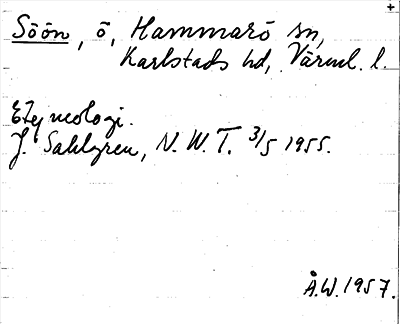 Söön, ö, Hammarö sn,
Karlstads hd, Värml. l.
Etymologi.
J. Sahlgren, N.W.T. 3/5 1955.
Å.W. 1957.